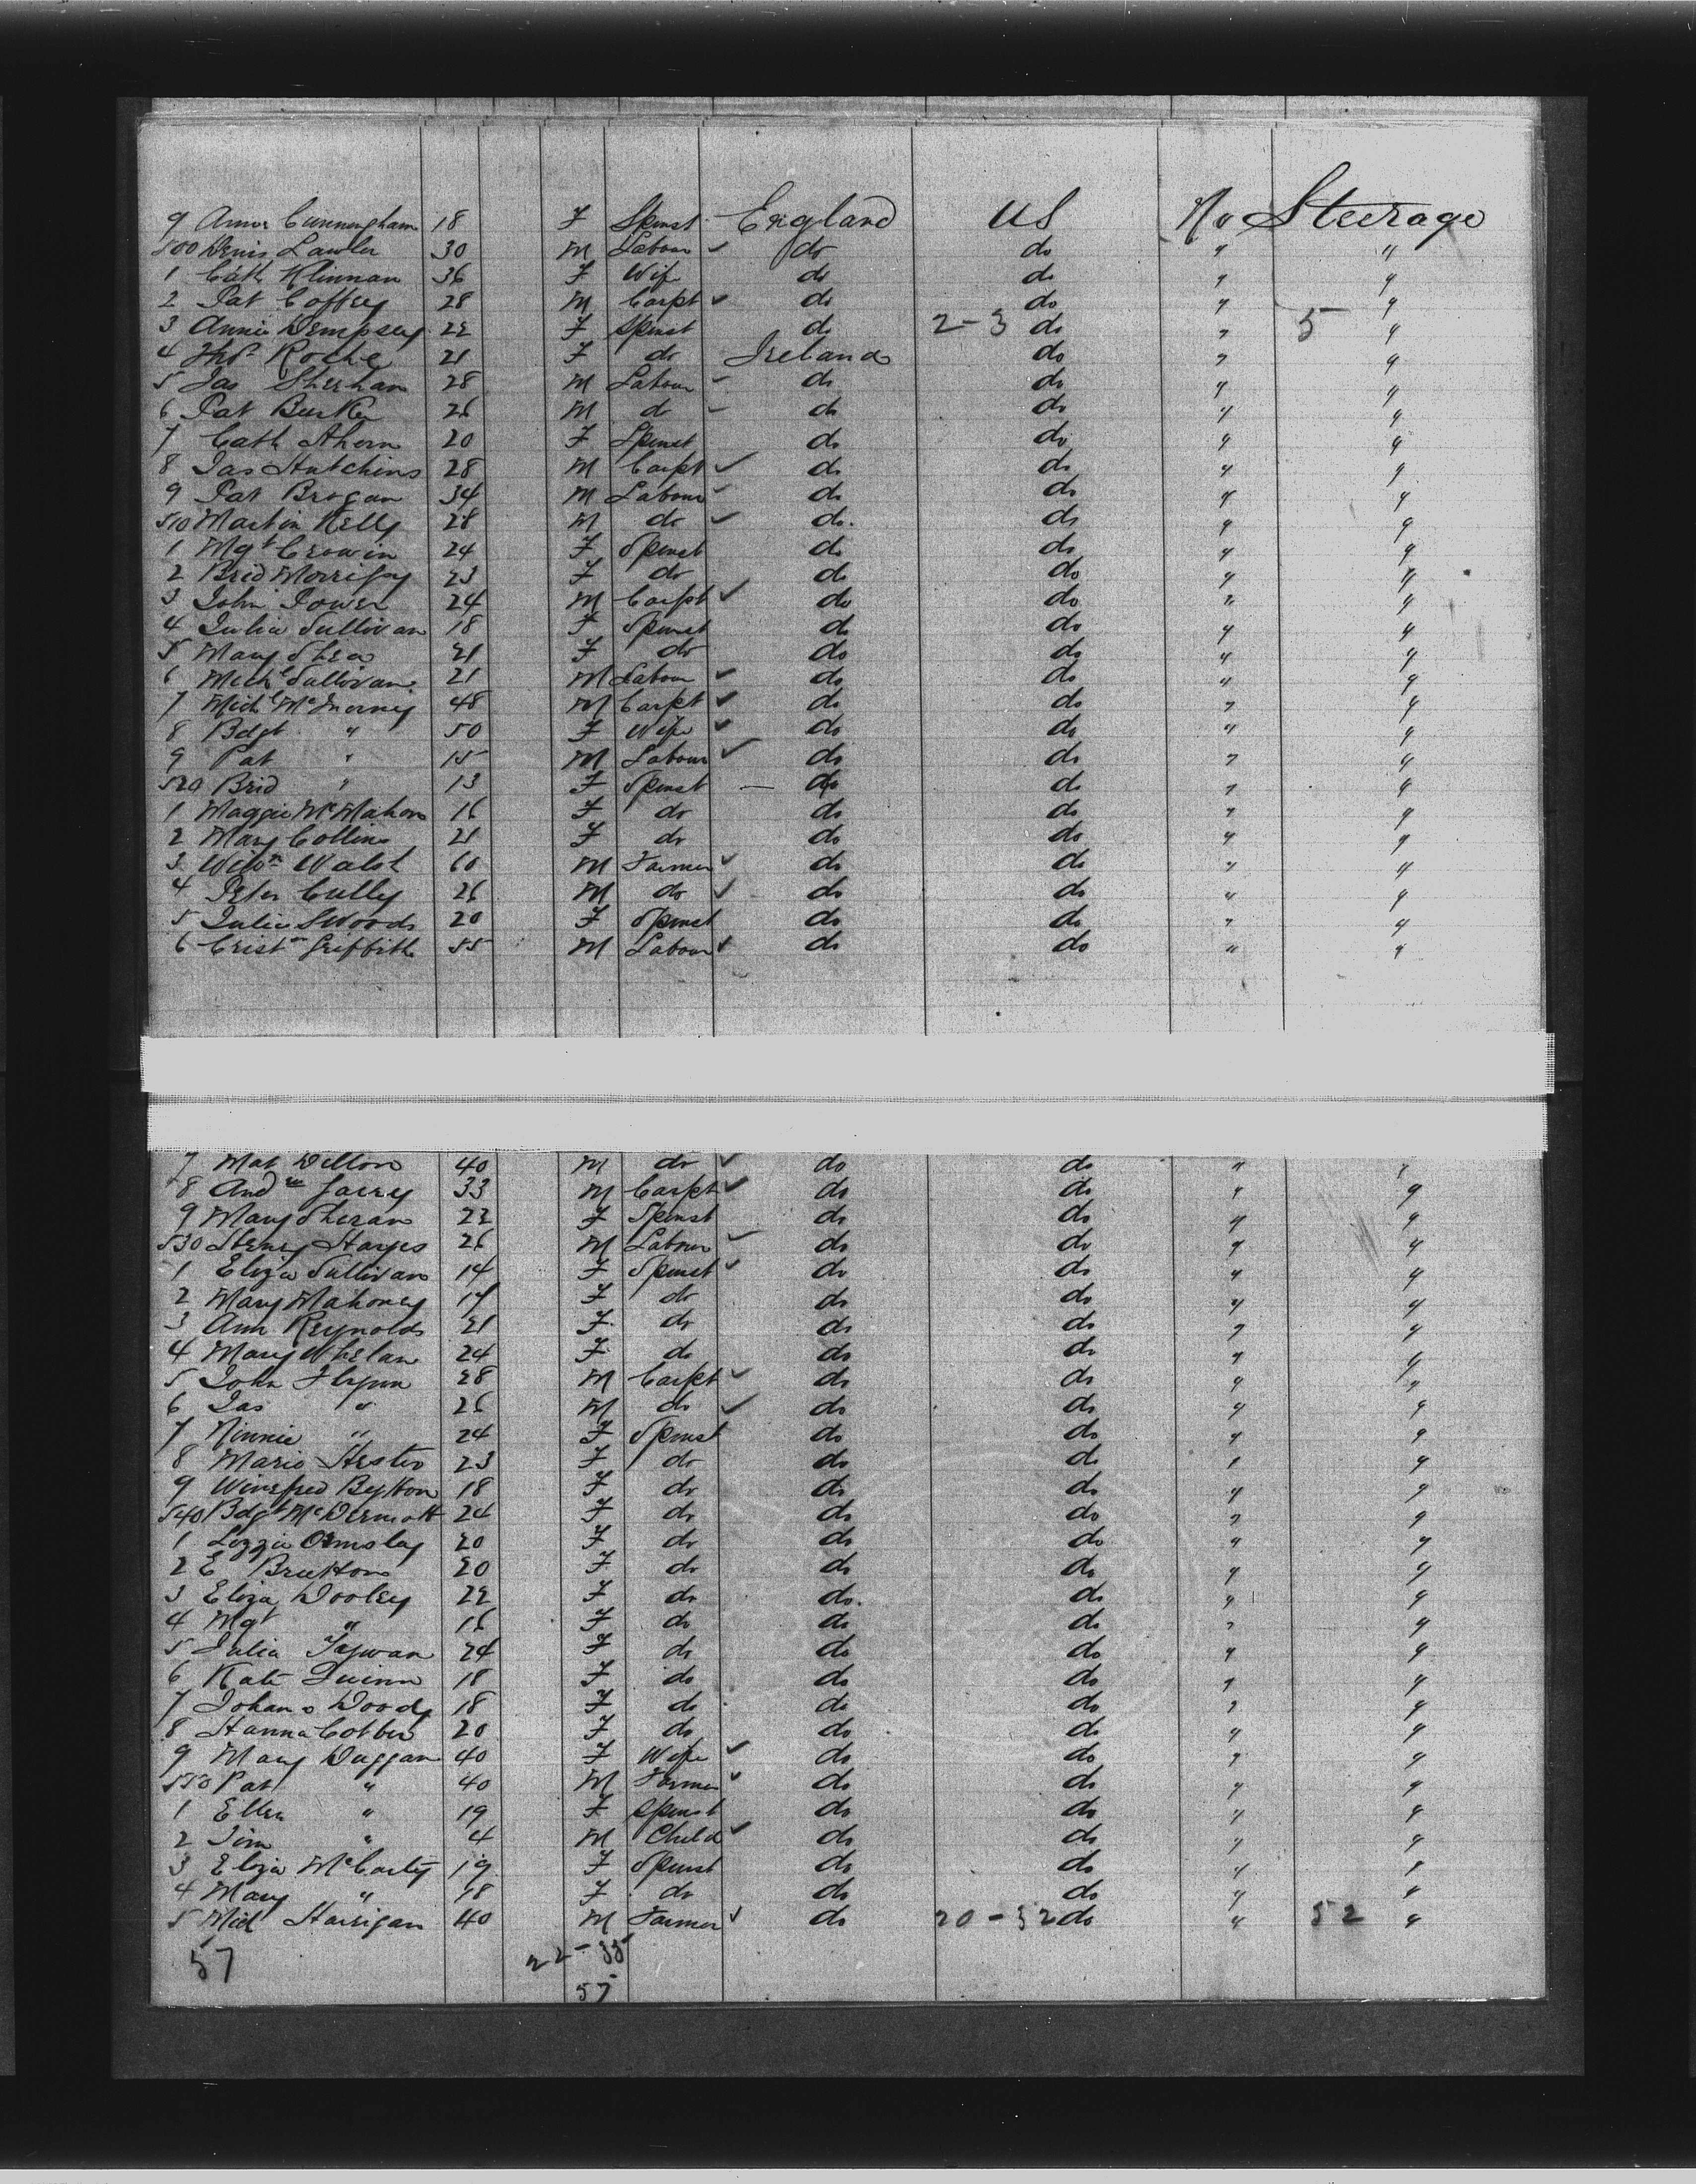 9 Anne Cunningham 18 F Spinst England US No Steerage
500 Denis Lawler 30 M Labour ✓ do do " "
1 Cath Klinnan 36 F Wife do do " "
2 Pat Coffey 28 M Carpt ✓ do do " "
3 Annie Dempsey 22 F Spinst do 2-3 do " 5 "
4 Thos Roche 21 F do Ireland do " "
5 Jas Sheehan 28 M Labour - do do " "
6 Pat Burke 26 M do - do do " "
7 Cath Ahern 20 F Spinst do do " "
8 Jas Hutchins 28 M Carpt ✓ do do " "
9 Pat Brogan 34 M Labour ✓ do do " "
510 Martin Kelly 28 M do ✓ do. do " "
1 Mgt Crowin 24 F Spinst do do " "
2 Brid Morrissy 23 F do do do " "
3 John Power 24 M Carpt ✓ do do " "
4 Julia Sullivan 18 F Spinst do do " "
5 Mary Shea 21 F do do do " "
6 Michl Sullivan 21 M Labour ✓ do do " "
7 Michl McInerney 48 M Carpt ✓ do do " "
8 Bdgt " 50 F Wife ✓ do do " "
9 Pat " 15 M Labour ✓ do do " "
520 Brid " 13 F Spinst - do do " "
1 Maggie McMahon 16 F do do do " "
2 Mary Collins 21 F do do do " "
3 Willm Walsh 60 M Farmer ✓ do do " "
4 Peter Cully 26 M do ✓ do do " "
5 Julia Swoods 20 F Spinst do do " "
6 Crist Griffith 55 M Labour ✓ do do " "
7 Mat Dillon 40 M do ✓ do do " "
8 Andw 33 M Carpt ✓ do do " "
9 Mary Sheran 22 F Spinst do do " "
530 Hayes 26 M Labour ✓ do do " "
1 Eliza Sullivan 14 F Spinst ✓ do do " "
2 Mary Mahoney 17 F do do do " "
3 Ann Reynolds 21 F. do do do " "
4 Mary Whelan 24 F do do do " "
5 John Flynn 28 M Carpt ✓ do do " "
6 Jas " 26 M do ✓ do do " "
7 Minnie " 24 F Spinst do do " "
8 Maria 23 F do do do " "
9 Winefred 18 F do do do " "
540 Bdgt McDermott 24 F do do do " "
1 Lizzie Ormsby 20 F do do do " "
2 E Brutton 20 F do do do " "
3 Eliza Dooley 22 F do do. do " "
4 Mgt " 16 F do do do " "
5 Julia 24 F do do do " "
6 Kate Quinn 18 F do do do " "
7 Johana Doody 18 F do do do " "
8 Hanna 20 F do do do " "
9 Mary Duggan 40 F Wife ✓ do do " "
550 Pat " 40 M Farmer ✓ do do " "
1 Ellen " 19 F Spinst do do " "
2 Jim " 4 M Child ✓ do do " "
3 Eliza McCarty 19 F Spinst do do " "
4 Mary " 18 F do do do " "
5 Michl Harrigan 40 M Farmer ✓ do 20-32 do " 52 "
57 22-35
57